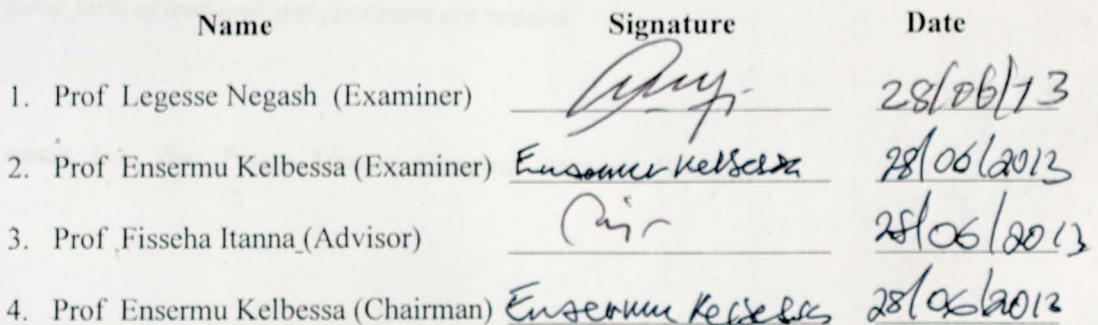 Name Signature Date
1. Prof Legesse Negash (Examiner) 28/06/13
2. Prof Ensermu Kelbessa (Examiner) Ensermu Kelbessa 28/06/2013
3. Prof Fisseha Itanna (Advisor) 28/06/2013
4. Prof Ensermu Kelbessa (Chairman) Ensermu Kelbessa 28/06/2013